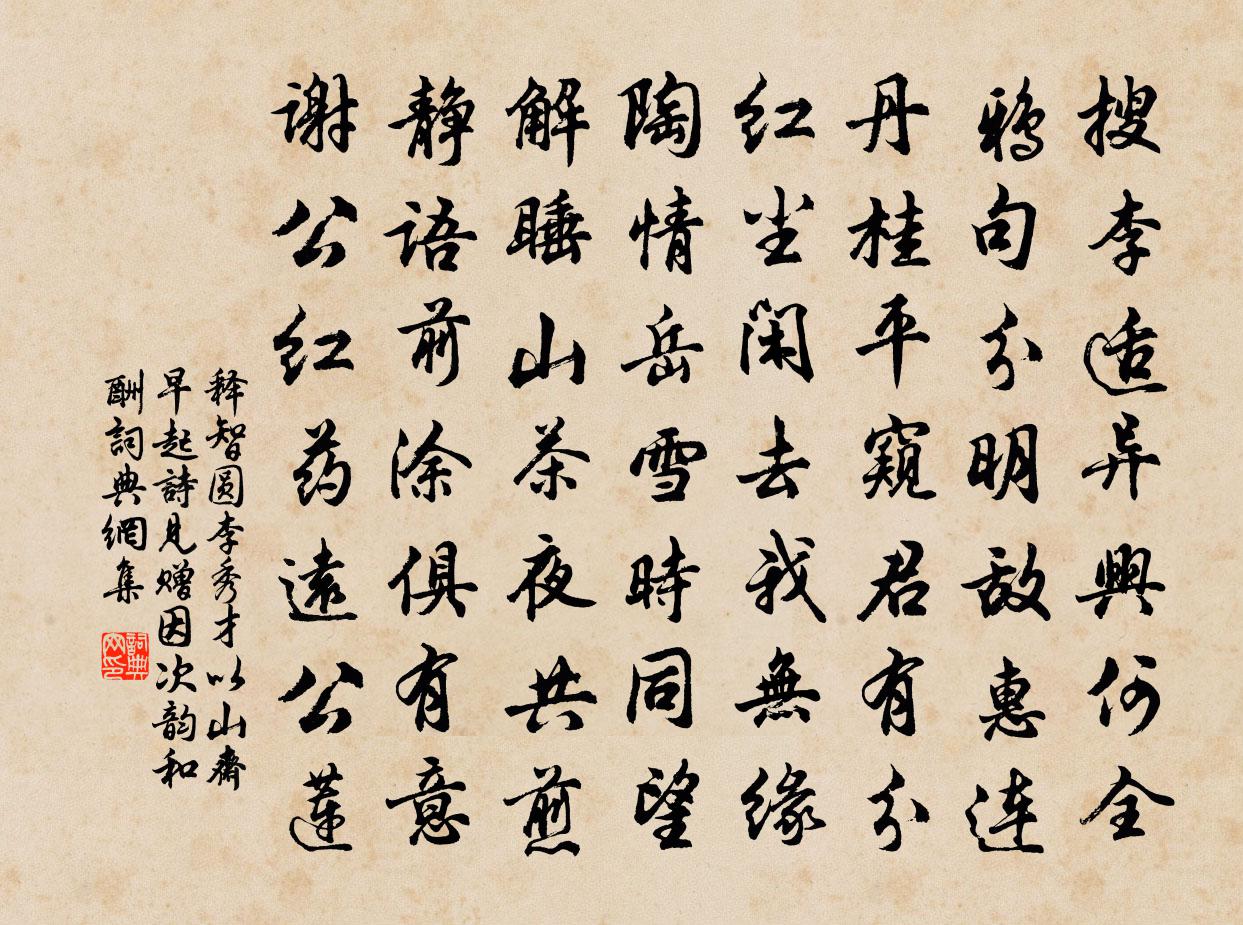 搜李适异興何全
鴉句分明敌惠连
丹桂平窺君有分
红尘闲去我無缘
陶情岳雪時同望
解睡山茶夜共煎
静语前涂俱有意
谢公红药遠公莲
释智圆李秀才以山齋
早起詩見赠因次韵和
酬詞典網集
詞典网印